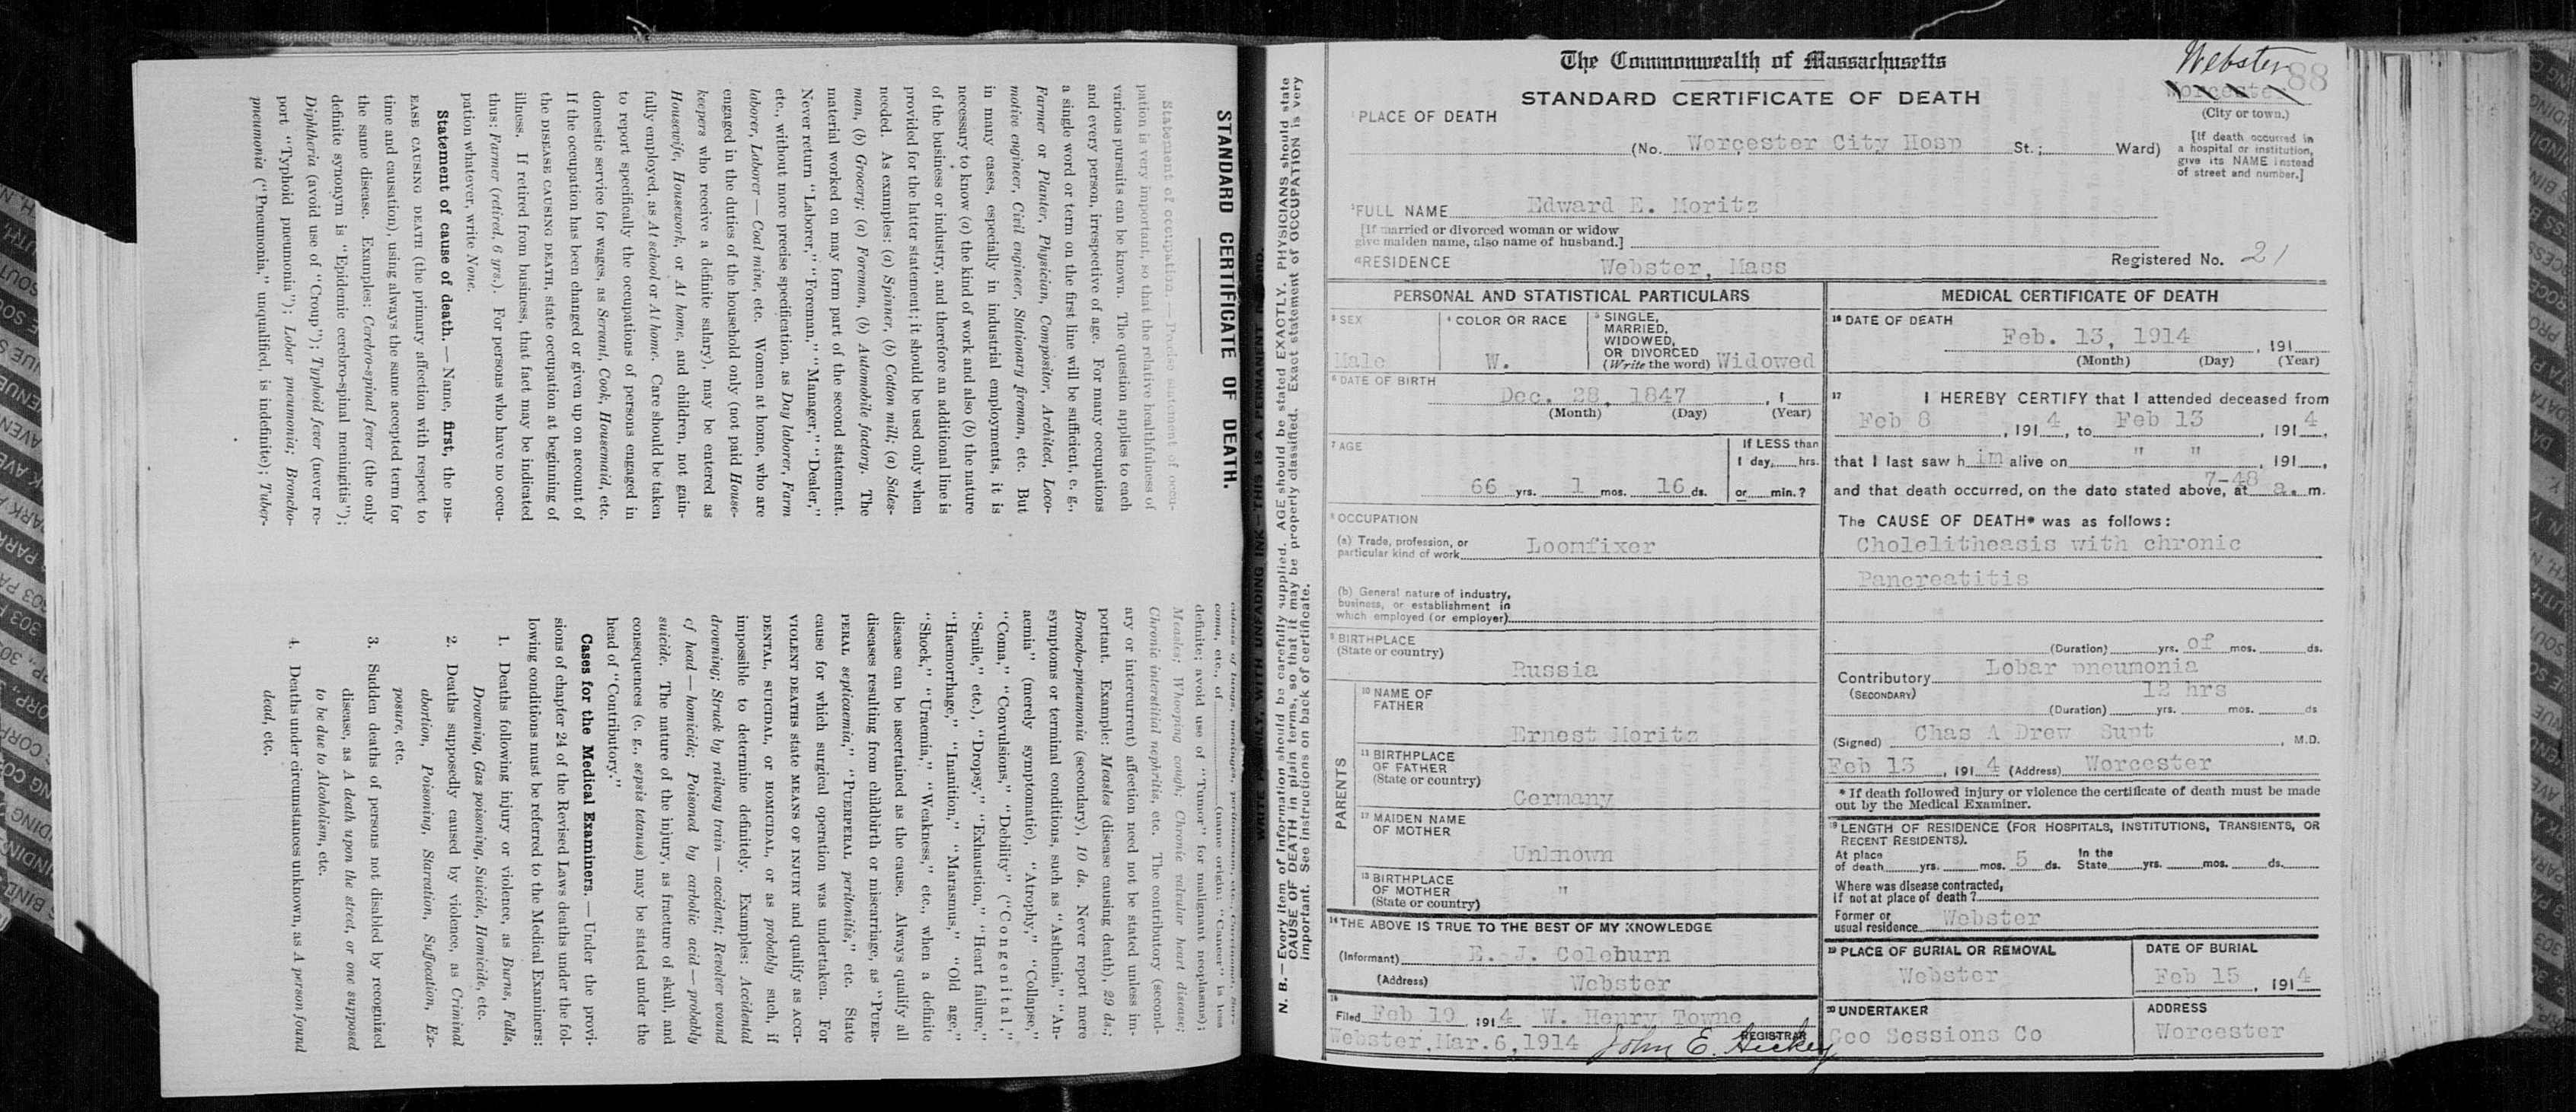 STANDARD CERTIFICATE OF DEATH.
Statement of occupation. — Precise statement of occu-
pation is very important, so that the relative healthfulness of
various pursuits can be known. The question applies to each
and every person, irrespective of age. For many occupations
a single word or term on the first line will be sufficient, e. g.,
Farmer or Planter, Physician, Compositor, Architect, Loco-
motive engineer, Civil engineer, Stationary fireman, etc. But
in many cases, especially in industrial employments, it is
necessary to know (a) the kind of work and also (b) the nature
of the business or industry, and therefore an additional line is
provided for the latter statement; it should be used only when
needed. As examples: (a) Spinner, (b) Cotton mill; (a) Sales-
man, (b) Grocery; (a) Foreman, (b) Automobile factory. The
material worked on may form part of the second statement.
Never return "Laborer," "Foreman," "Manager," "Dealer,"
etc., without more precise specification, as Day laborer, Farm
laborer, Laborer — Coal mine, etc. Women at home, who are
engaged in the duties of the household only (not paid House-
keepers who receive a definite salary), may be entered as
Housewife, Housework, or At home, and children, not gain-
fully employed, as At school or At home. Care should be taken
to report specifically the occupations of persons engaged in
domestic service for wages, as Servant, Cook, Housemaid, etc.
If the occupation has been changed or given up on account of
the DISEASE CAUSING DEATH, state occupation at beginning of
illness. If retired from business, that fact may be indicated
thus: Farmer (retired, 6 yrs.). For persons who have no occu-
pation whatever, write None.
Statement of cause of death. — Name, first, the DIS-
EASE CAUSING DEATH (the primary affection with respect to
time and causation), using always the same accepted term for
the same disease. Examples: Cerebro-spinal fever (the only
definite synonym is "Epidemic cerebro-spinal meningitis");
Diphtheria (avoid use of "Croup"); Typhoid fever (never re-
port "Typhoid pneumonia"); Lobar pneumonia; Broncho-
pneumonia ("Pneumonia," unqualified, is indefinite); Tuber-
culosis of lungs, meninges, peritonaeum, etc., Carcinoma, Sar-
coma, etc., of (name origin; "Cancer" is less
definite; avoid use of "Tumor" for malignant neoplasms);
Measles; Whooping cough; Chronic valvular heart disease;
Chronic interstitial nephritis, etc. The contributory (second-
ary or intercurrent) affection need not be stated unless im-
portant. Example: Measles (disease causing death), 29 ds.;
Broncho-pneumonia (secondary), 10 ds. Never report mere
symptoms or terminal conditions, such as "Asthenia," "An-
aemia" (merely symptomatic), "Atrophy," "Collapse,"
"Coma," "Convulsions," "Debility" ("Congenital,"
"Senile," etc.), "Dropsy," "Exhaustion," "Heart failure,"
"Haemorrhage," "Inanition," "Marasmus," "Old age,"
"Shock," "Uraemia," "Weakness," etc., when a definite
disease can be ascertained as the cause. Always qualify all
diseases resulting from childbirth or miscarriage, as "PUER-
PERAL septicaemia," "PUERPERAL peritonitis," etc. State
cause for which surgical operation was undertaken. For
VIOLENT DEATHS state MEANS OF INJURY and qualify as ACCI-
DENTAL, SUICIDAL, or HOMICIDAL, or as probably such, if
impossible to determine definitely. Examples: Accidental
drowning; Struck by railway train — accident; Revolver wound
of head — homicide; Poisoned by carbolic acid — probably
suicide. The nature of the injury, as fracture of skull, and
consequences (e. g., sepsis tetanus) may be stated under the
head of "Contributory."
Cases for the Medical Examiners. — Under the provi-
sions of chapter 24 of the Revised Laws deaths under the fol-
lowing conditions must be referred to the Medical Examiners:
1. Deaths following injury or violence, as Burns, Falls,
Drowning, Gas poisoning, Suicide, Homicide, etc.
2. Deaths supposedly caused by violence, as Criminal
abortion, Poisoning, Starvation, Suffocation, Ex-
posure, etc.
3. Sudden deaths of persons not disabled by recognized
disease, as A death upon the street, or one supposed
to be due to Alcoholism, etc.
4. Deaths under circumstances unknown, as A person found
dead, etc.
WRITE PLAINLY, WITH UNFADING INK — THIS IS A PERMANENT RECORD.
N. B. — Every item of information should be carefully supplied. AGE should be stated EXACTLY. PHYSICIANS should state
CAUSE OF DEATH in plain terms, so that it may be properly classified. Exact statement of OCCUPATION is very
important. See instructions on back of certificate.
The Commonwealth of Massachusetts
STANDARD CERTIFICATE OF DEATH
Webster 88
Worcester
(City or town.)
1 PLACE OF DEATH
(No. Worcester City Hosp St.; Ward)
[If death occurred in
a hospital or institution,
give its NAME instead
of street and number.]
2 FULL NAME Edward E. Moritz
[If married or divorced woman or widow
give maiden name, also name of husband.]
RESIDENCE Webster, Mass
Registered No. 21
PERSONAL AND STATISTICAL PARTICULARS
3 SEX
Male
4 COLOR OR RACE
W.
5 SINGLE,
MARRIED,
WIDOWED,
OR DIVORCED
(Write the word) Widowed
6 DATE OF BIRTH
Dec. 28, 1847 , 1
(Month) (Day) (Year)
7 AGE
66 yrs. 1 mos. 16 ds.
If LESS than
1 day, hrs.
or min.?
8 OCCUPATION
(a) Trade, profession, or
particular kind of work Loomfixer
(b) General nature of industry,
business, or establishment in
which employed (or employer)
9 BIRTHPLACE
(State or country)
Russia
PARENTS
10 NAME OF
FATHER
Ernest Moritz
11 BIRTHPLACE
OF FATHER
(State or country)
Germany
12 MAIDEN NAME
OF MOTHER
Unknown
13 BIRTHPLACE
OF MOTHER
(State or country)
"
14 THE ABOVE IS TRUE TO THE BEST OF MY KNOWLEDGE
(Informant) E. J. Coleburn
(Address) Webster
15
Filed Feb 19, 1914 W. Henry Towne
REGISTRAR
Webster, Mar. 6, 1914 John E. Hickey
MEDICAL CERTIFICATE OF DEATH
16 DATE OF DEATH
Feb. 13, 1914 , 191
(Month) (Day) (Year)
17 I HEREBY CERTIFY that I attended deceased from
Feb 8 , 191 4, to Feb 13 , 191 4,
that I last saw h im alive on " " , 191 ,
and that death occurred, on the date stated above, at 7-48 a. m.
The CAUSE OF DEATH* was as follows:
Cholelitheasis with chronic
Pancreatitis
(Duration) yrs. of mos. ds.
Contributory Lobar pneumonia
(SECONDARY) 12 hrs
(Duration) yrs. mos. ds
(Signed) Chas A Drew Supt , M.D.
Feb 13 , 191 4 (Address) Worcester
* If death followed injury or violence the certificate of death must be made
out by the Medical Examiner.
18 LENGTH OF RESIDENCE (FOR HOSPITALS, INSTITUTIONS, TRANSIENTS, OR
RECENT RESIDENTS).
At place
of death yrs. mos. 5 ds. In the
State yrs. mos. ds.
Where was disease contracted,
If not at place of death?
Former or
usual residence Webster
19 PLACE OF BURIAL OR REMOVAL
Webster
DATE OF BURIAL
Feb 15 , 191 4
20 UNDERTAKER
Geo Sessions Co
ADDRESS
Worcester